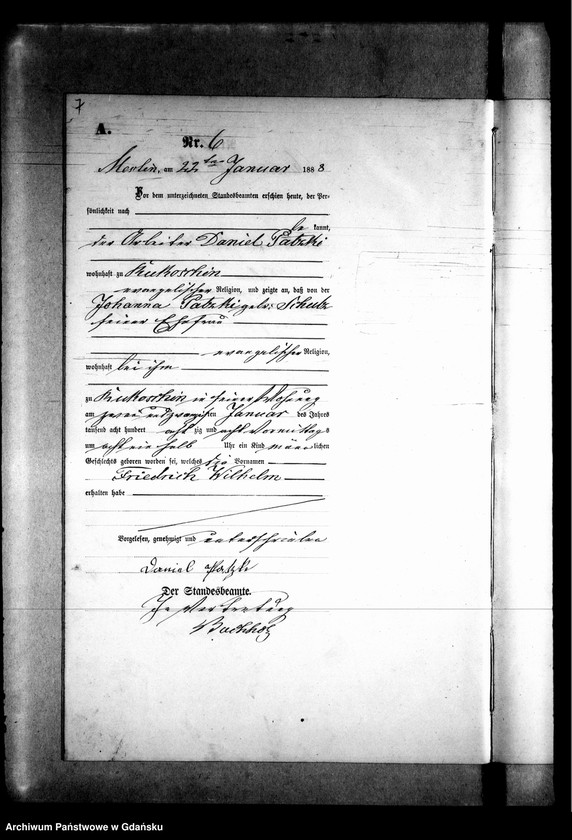 7
A.
Nr. 6
am 22ten Januar 1888
Vor dem unterzeichneten Standesbeamten erschien heute, der Per-
sönlichkeit nach
be kannt,
der Arbeiter Daniel Patzki
wohnhaft zu Kukoschin
evangelischer Religion, und zeigte an, daß von der
Johanna Patzki geb. Schulz
seiner Ehefrau
evangelischer Religion,
wohnhaft bei ihm
zu Kukoschin in seiner Wohnung
am zwei und zwanzigsten Januar des Jahres
tausend acht hundert acht zig und acht Vormittags
um acht ein halb Uhr ein Kind männlichen
Geschlechts geboren worden sei, welches die Vornamen
Friedrich Wilhelm
erhalten habe
Vorgelesen, genehmigt und unterschrieben
Daniel Patzki
Der Standesbeamte.
In Vertretung
Archiwum Państwowe w Gdańsku